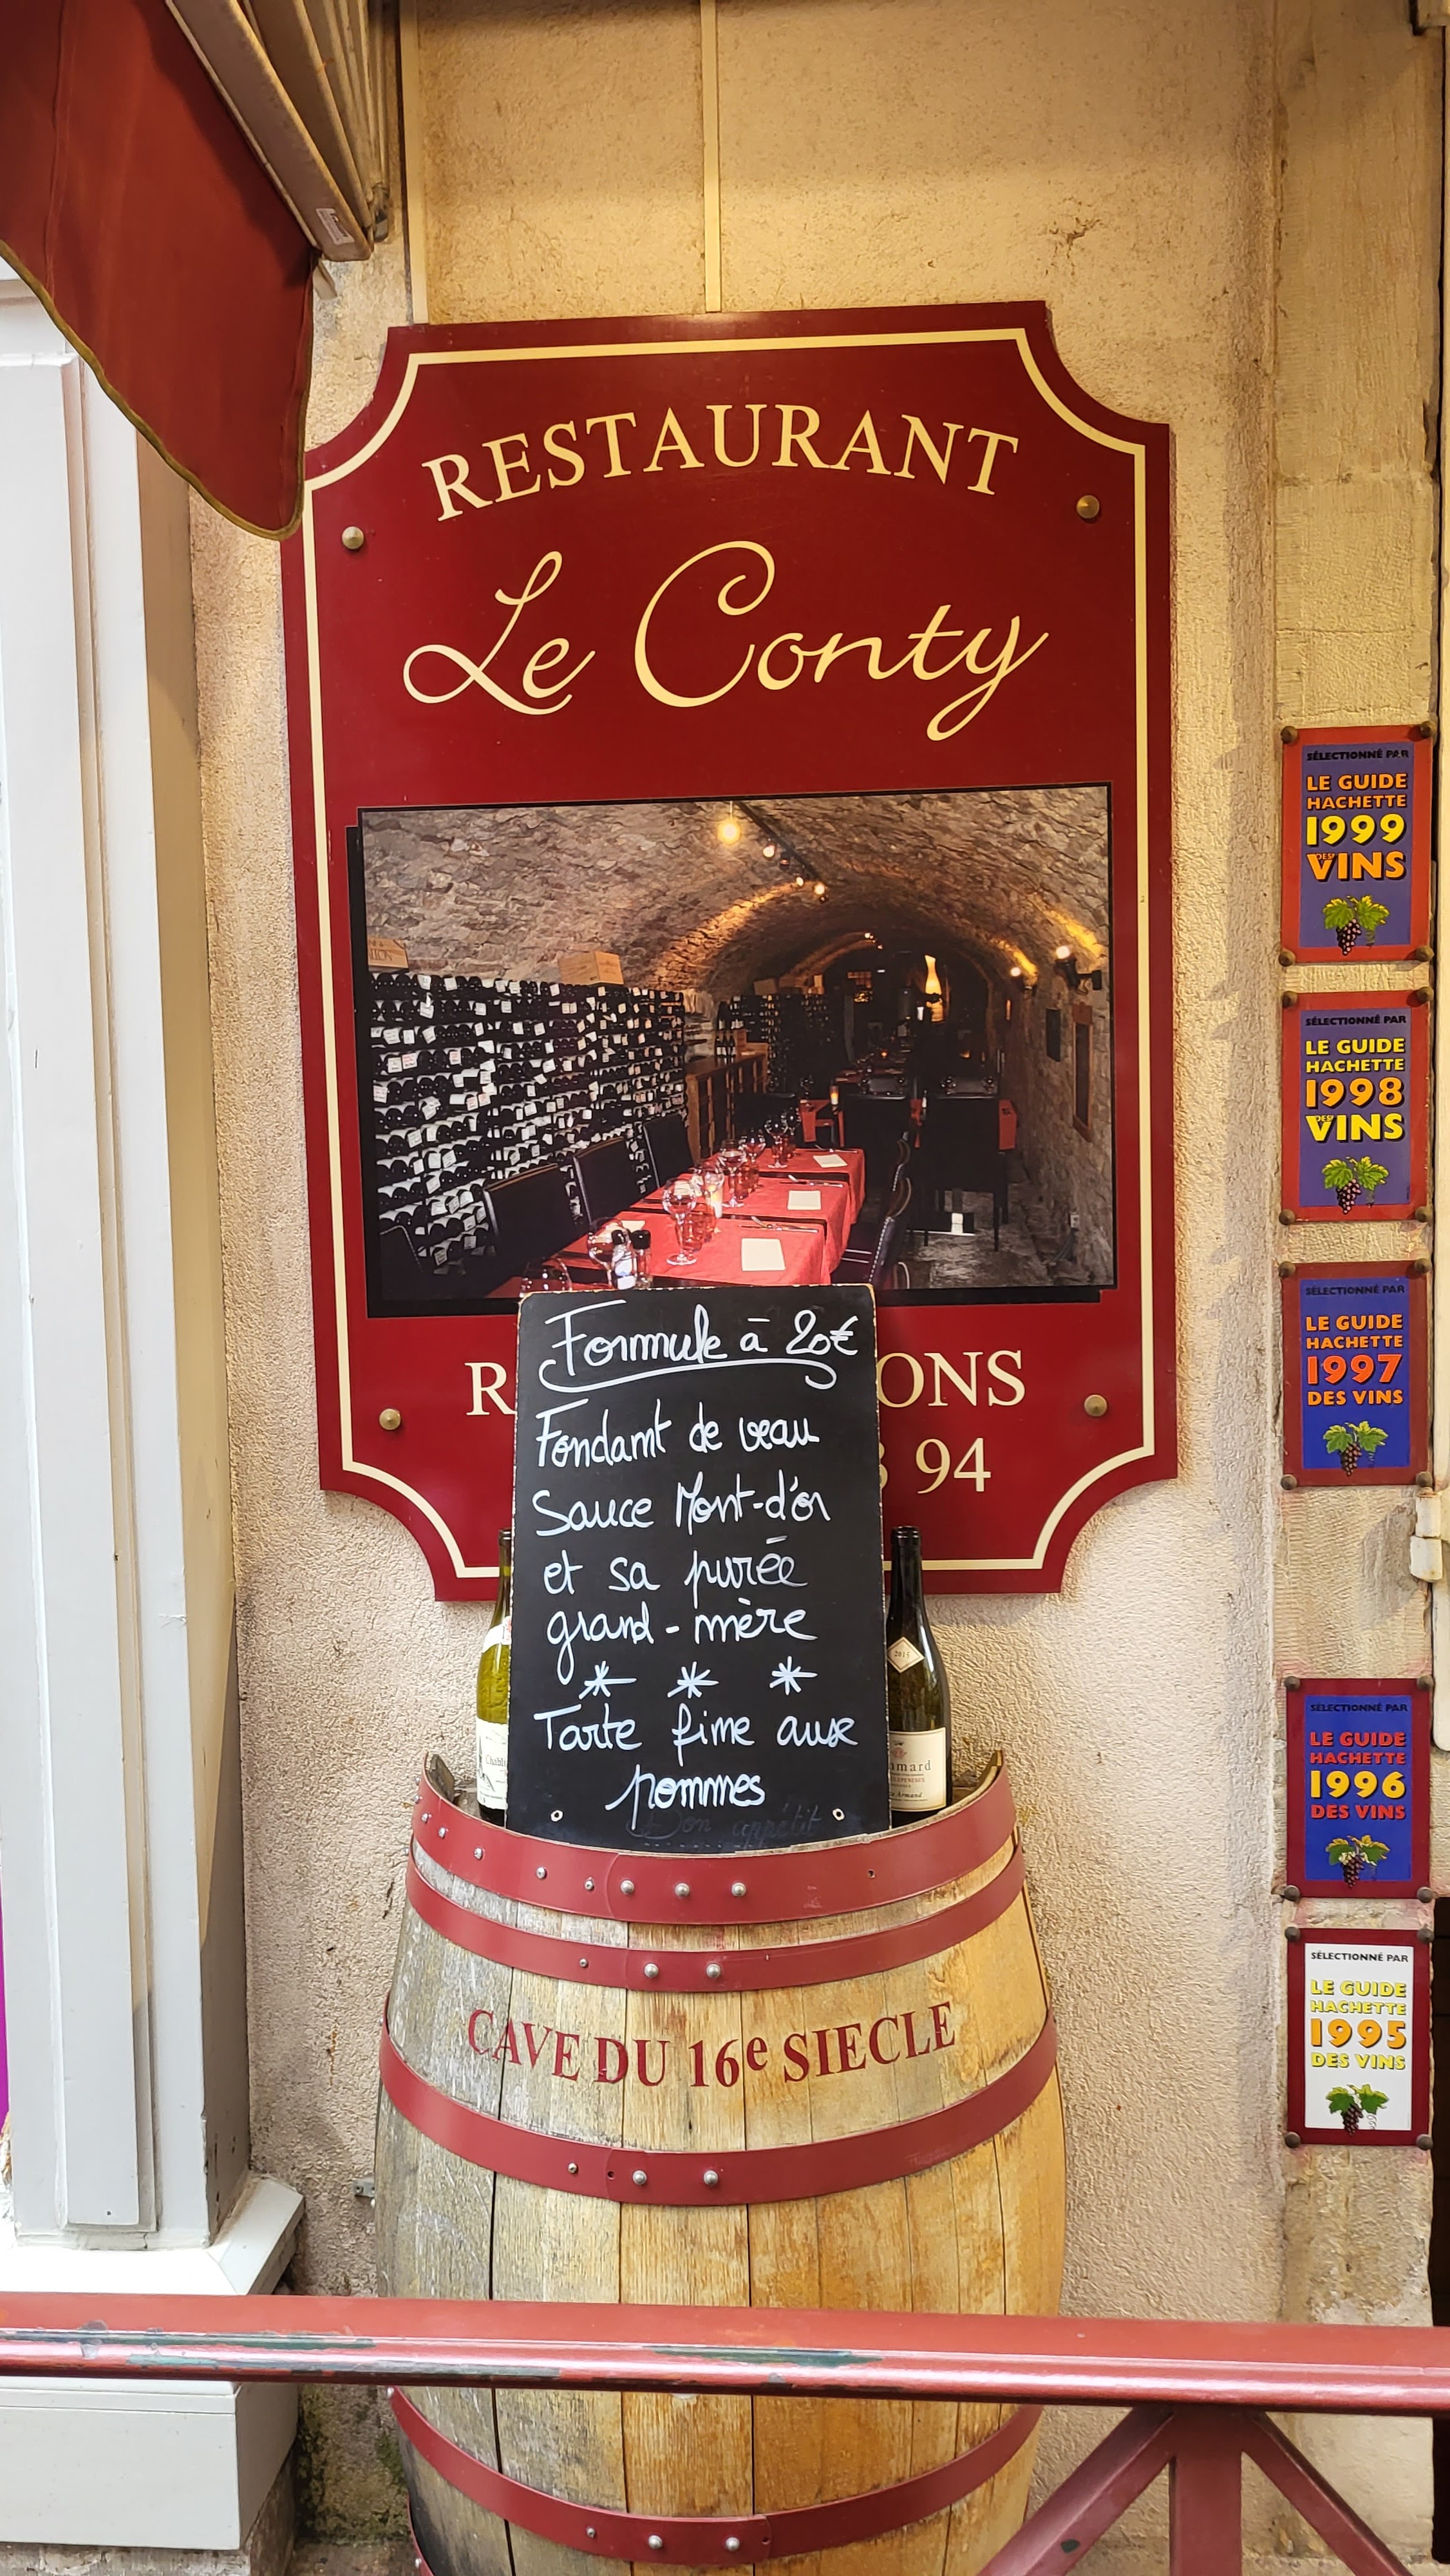 RESTAURANT
Le Conty
94
Formule à 20€
Fondant de veau
Sauce Mont-d'or
et sa purée
grand-mère
* * *
Tarte fine aux
pommes
Bon appétit
2015
CAVE DU 16e SIECLE
SÉLECTIONNÉ PAR
LE GUIDE
HACHETTE
1999
DES
VINS
SÉLECTIONNÉ PAR
LE GUIDE
HACHETTE
1998
DES
VINS
SÉLECTIONNÉ PAR
LE GUIDE
HACHETTE
1997
DES VINS
SÉLECTIONNÉ PAR
LE GUIDE
HACHETTE
1996
DES VINS
SÉLECTIONNÉ PAR
LE GUIDE
HACHETTE
1995
DES VINS